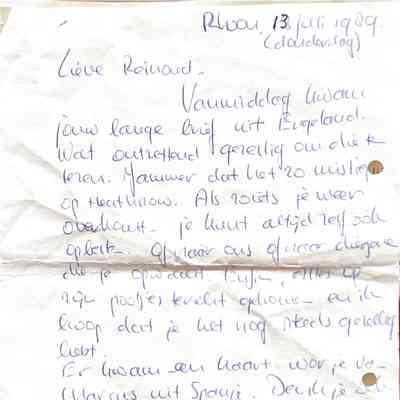 Rhoon, 13 juli 1989.
(donderdag)
Lieve Reinoud.
Vanmiddag kwam
jouw lange brief uit Engeland.
Wat ontzettend gezellig om die te
lezen. Jammer dat het zo mistig
op Heathrow. Als zoiets je weer
overkomt - je kunt altijd zelf ook
opbellen. Of naar ons of naar diegene
die je
zijn pootjes terecht gekomen en ik
hoop dat je het nog steeds gezellig
hebt.
Er kwam een kaart voor je van
Marcus uit Spanje. Denk je